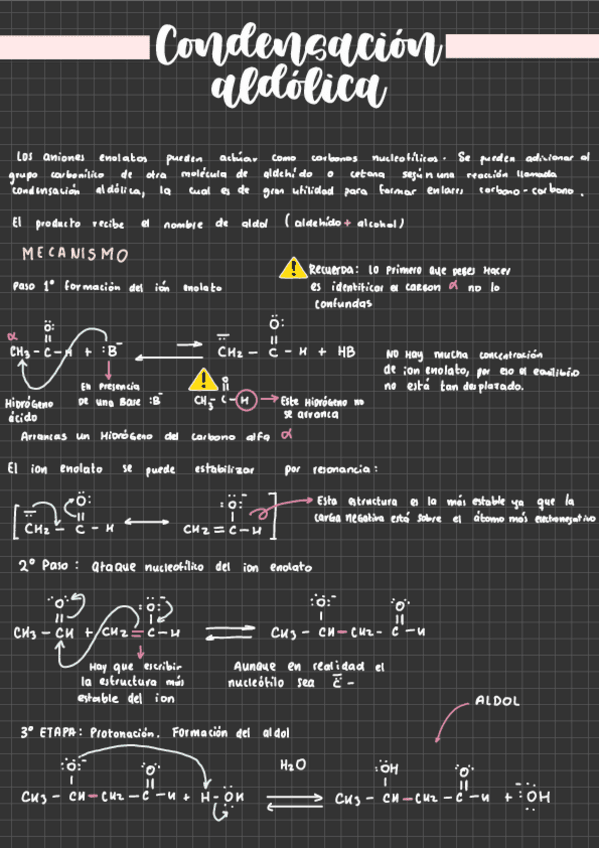 Condensación
aldólica
Los aniones enolatos pueden actuar como carbonos nucleofílicos. Se pueden adicionar al
grupo carbonílico de otra molécula de aldehído o cetona según una reacción llamada
condensación aldólica, la cual es de gran utilidad para formar enlaces carbono-carbono.
El producto recibe el nombre de aldol (aldehído + alcohol)
MECANISMO
Paso 1º formación del ión enolato
Recuerda: lo primero que debes hacer
es identificar el carbon α no lo
confundas
α
:O:
CH₃ - C - H + :B⁻ ⇌ CH₂ - C - H + HB
:O:
No hay mucha concentración
de ion enolato, por eso el equilibrio
no está tan desplazado.
Hidrógeno
ácido
En presencia
de una base :B⁻
CH₃ - C - H
Este hidrógeno no
se arranca
Arrancas un Hidrógeno del carbono alfa α
El ion enolato se puede estabilizar por resonancia:
:O: :O:⁻
[CH₂ - C - H ↔ CH₂ = C - H]
Esta estructura es la más estable ya que la
carga negativa está sobre el átomo más electronegativo
2º Paso: Ataque nucleofílico del ion enolato
:O: :O:⁻ :O:⁻ :O:
CH₃ - CH + CH₂ = C - H ⇌ CH₃ - CH - CH₂ - C - H
Hay que escribir
la estructura más
estable del ion
Aunque en realidad el
nucleófilo sea C̅ -
ALDOL
3º ETAPA: Protonación. Formación del aldol
:O:⁻ :O: H₂O :OH :O:
CH₃ - CH - CH₂ - C - H + H - OH ⇌ CH₃ - CH - CH₂ - C - H + ⁻:OH